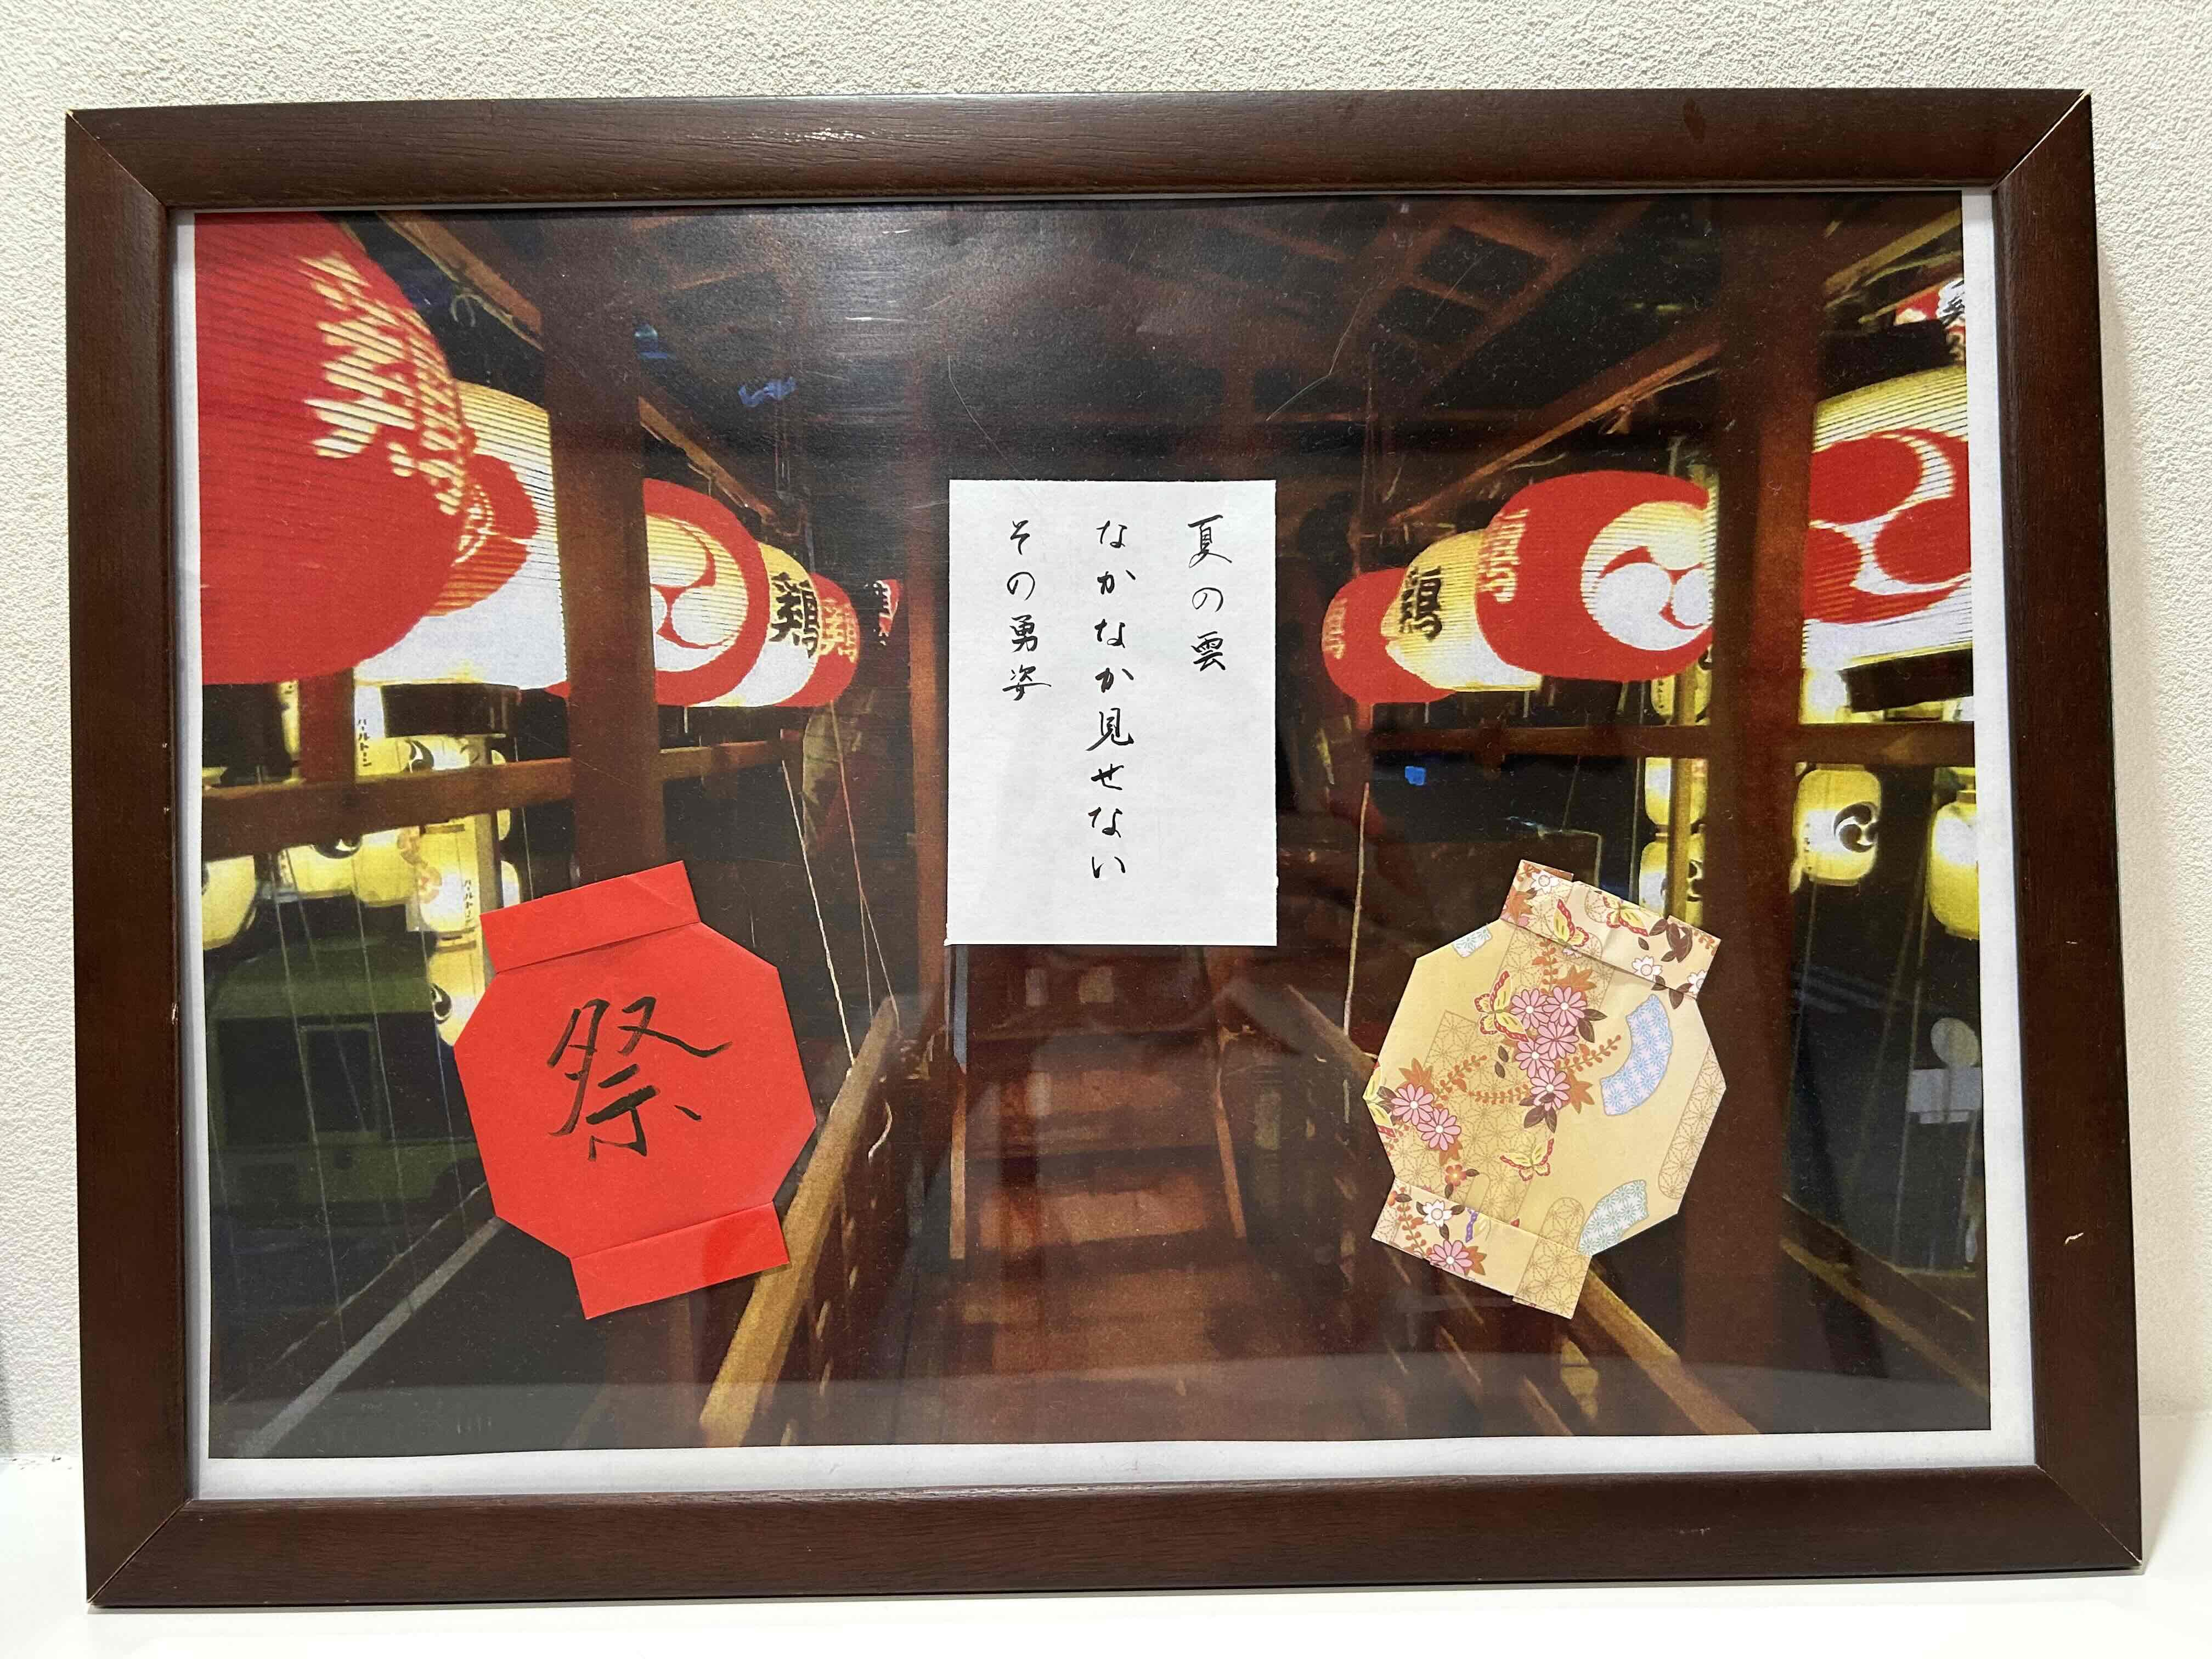 夏の雲
なかなか見せない
その勇姿
祭
鶏
鶏